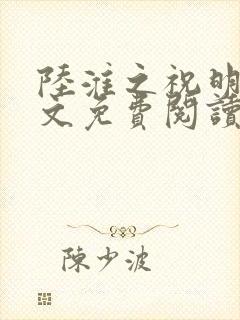 陸淮之祝明
文免費閱讀
陳少波